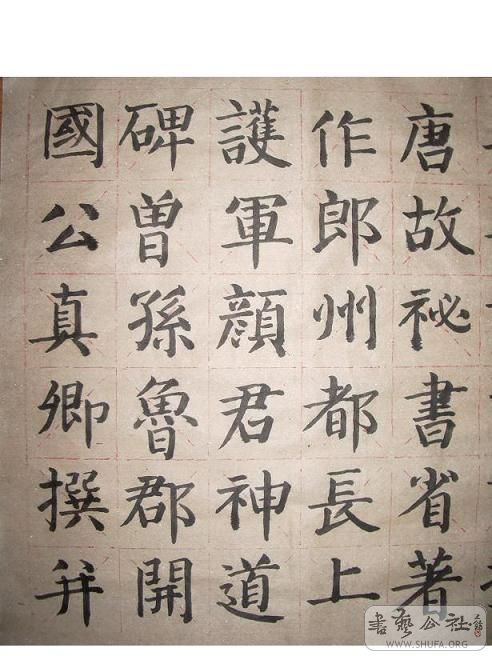 唐故祕書省著
作郎州都長上
護軍顏君神道
碑曾孫魯郡開
國公真卿撰并
書藝公社
WWW.SHUFA.ORG